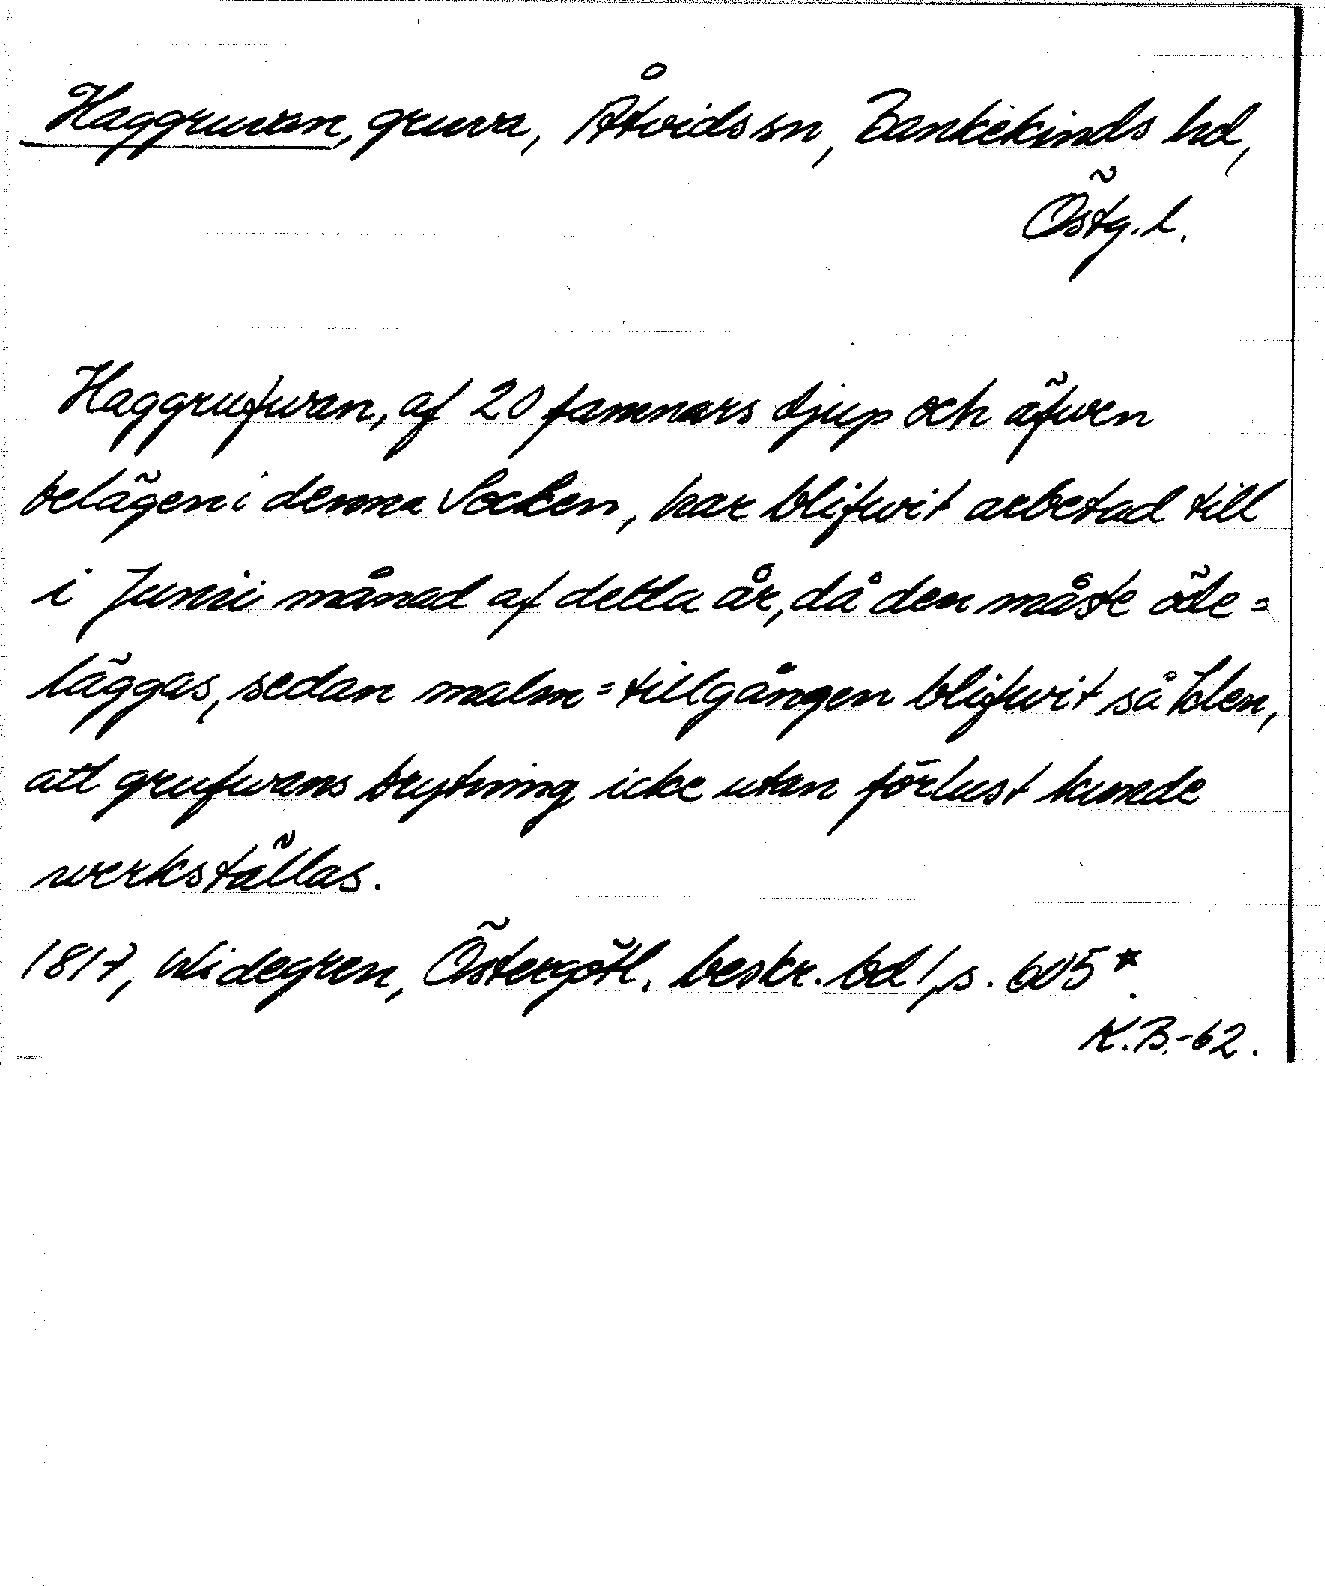 Haggruvan, gruva, Åtvids sn, Bankekinds hd,
Östg. l.
Haggrufwan, af 20 famnars djup och äfwen
belägen i denna Socken, har blifwit arbetad till
i Junii månad af detta år, då den måste öde=
läggas, sedan malm=tillgången blifwit så klen,
att grufwans brytning icke utan förlust kunde
werkställas.
1817, Widegren, Östergötl. beskr. bd 1, s. 605*.
K.B.-62.